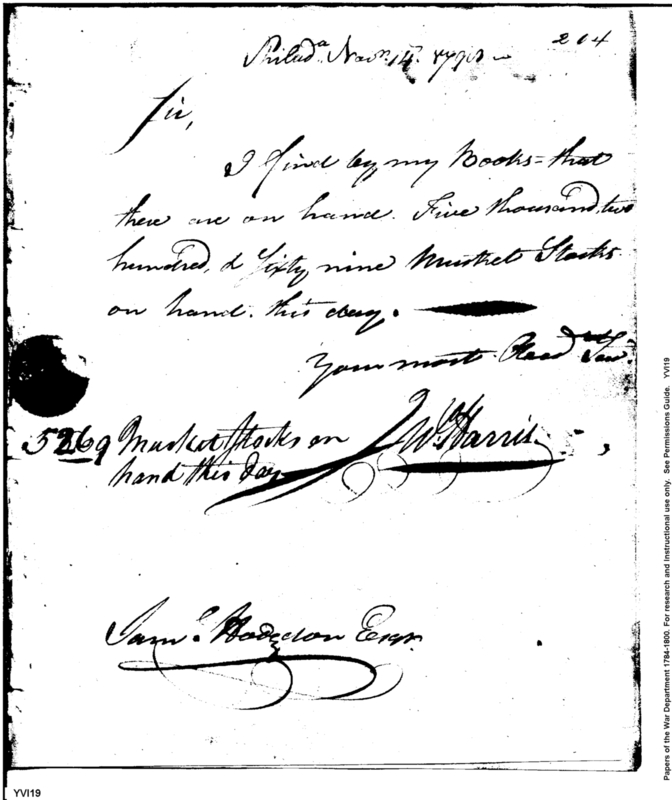 204
Philada. Novr. 14th.
Sir,
I find by my Books = that
there are on hand. Five thousand, two
hundred, & Sixty nine Musket Stocks
on hand. this day.
Your most Obed
5269 Musket Stocks on
hand this day
Wm Harris
Saml. Hodgdon Esqr.
YVI19
Papers of the War Department 1784-1800. For research and instructional use only. See Permissions Guide. YVI19